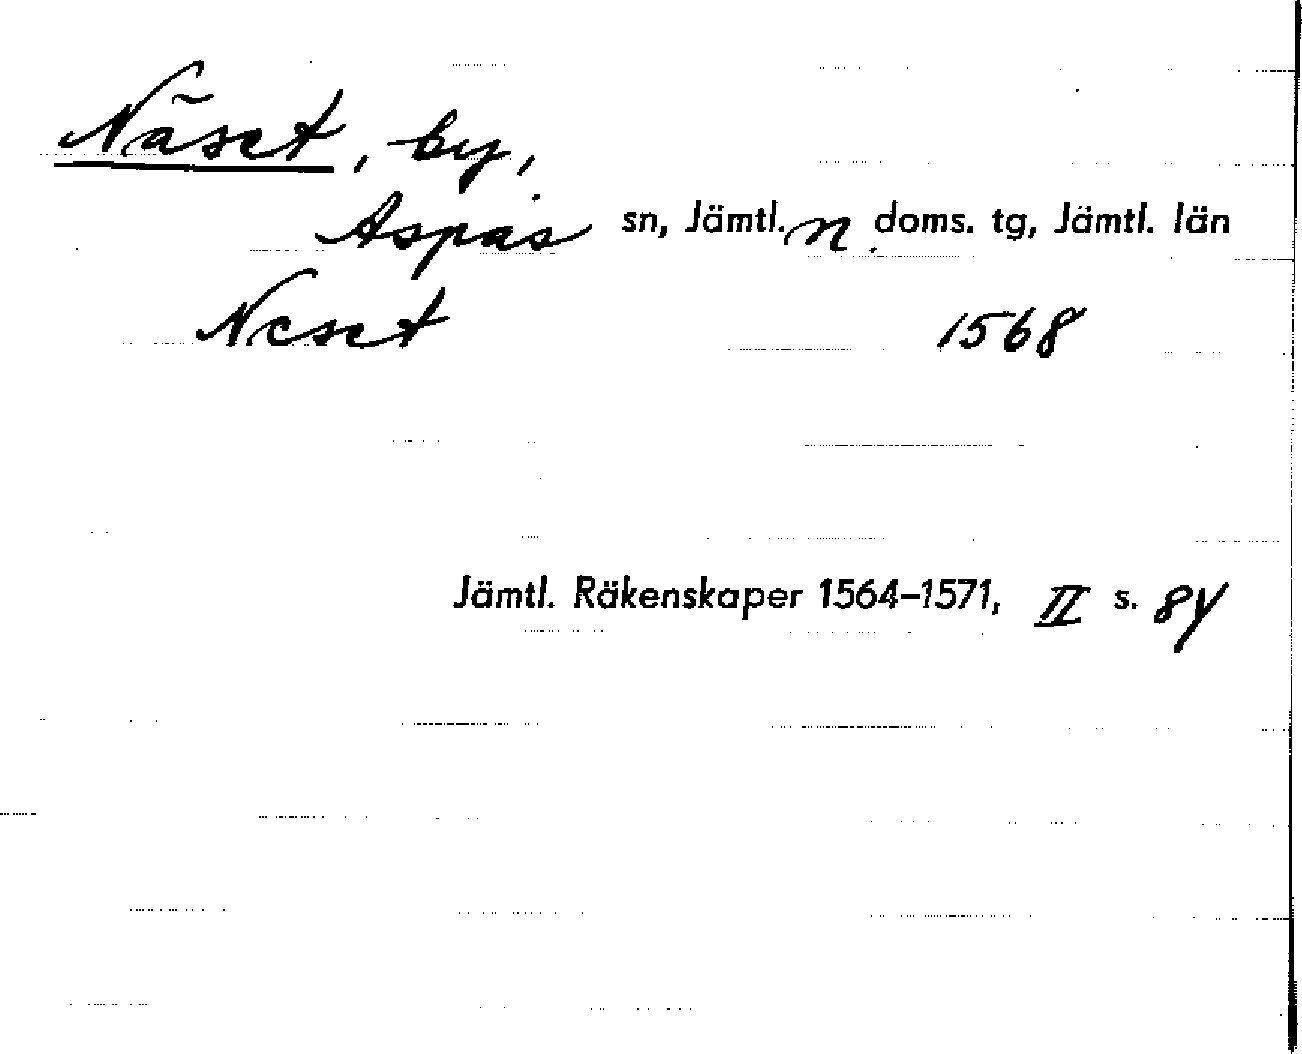 Näset, by,
Aspås sn, Jämtl. n doms. tg, Jämtl. län
Neset 1568
Jämtl. Räkenskaper 1564–1571, II s. 84